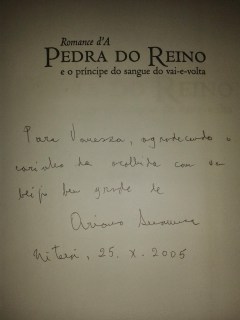 Romance d'A
PEDRA DO REINO
e o príncipe do sangue do vai-e-volta
Para Vanessa, agradecendo o
carinho da acolhida com um
beijo bem grande de
Ariano Suassuna
Niterói, 25. X. 2005